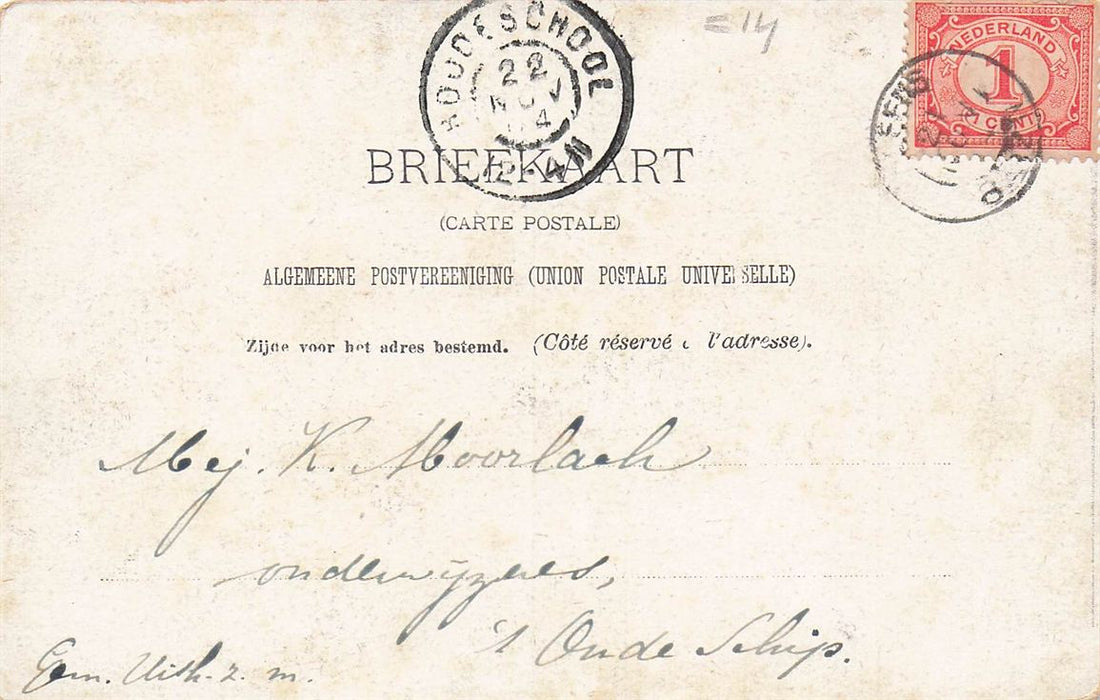 =14
ROODESCHOOL
22
NOV
04
12-4N
NEDERLAND
1
CENT
BRIEFKAART
(CARTE POSTALE)
ALGEMEENE POSTVEREENIGING (UNION POSTALE UNIVERSELLE)
Zijde voor het adres bestemd. (Côté réservé à l'adresse).
Mej. K. Moorlach
onderwijzeres,
't Oude Schip.
Gem. Uith. z. m.